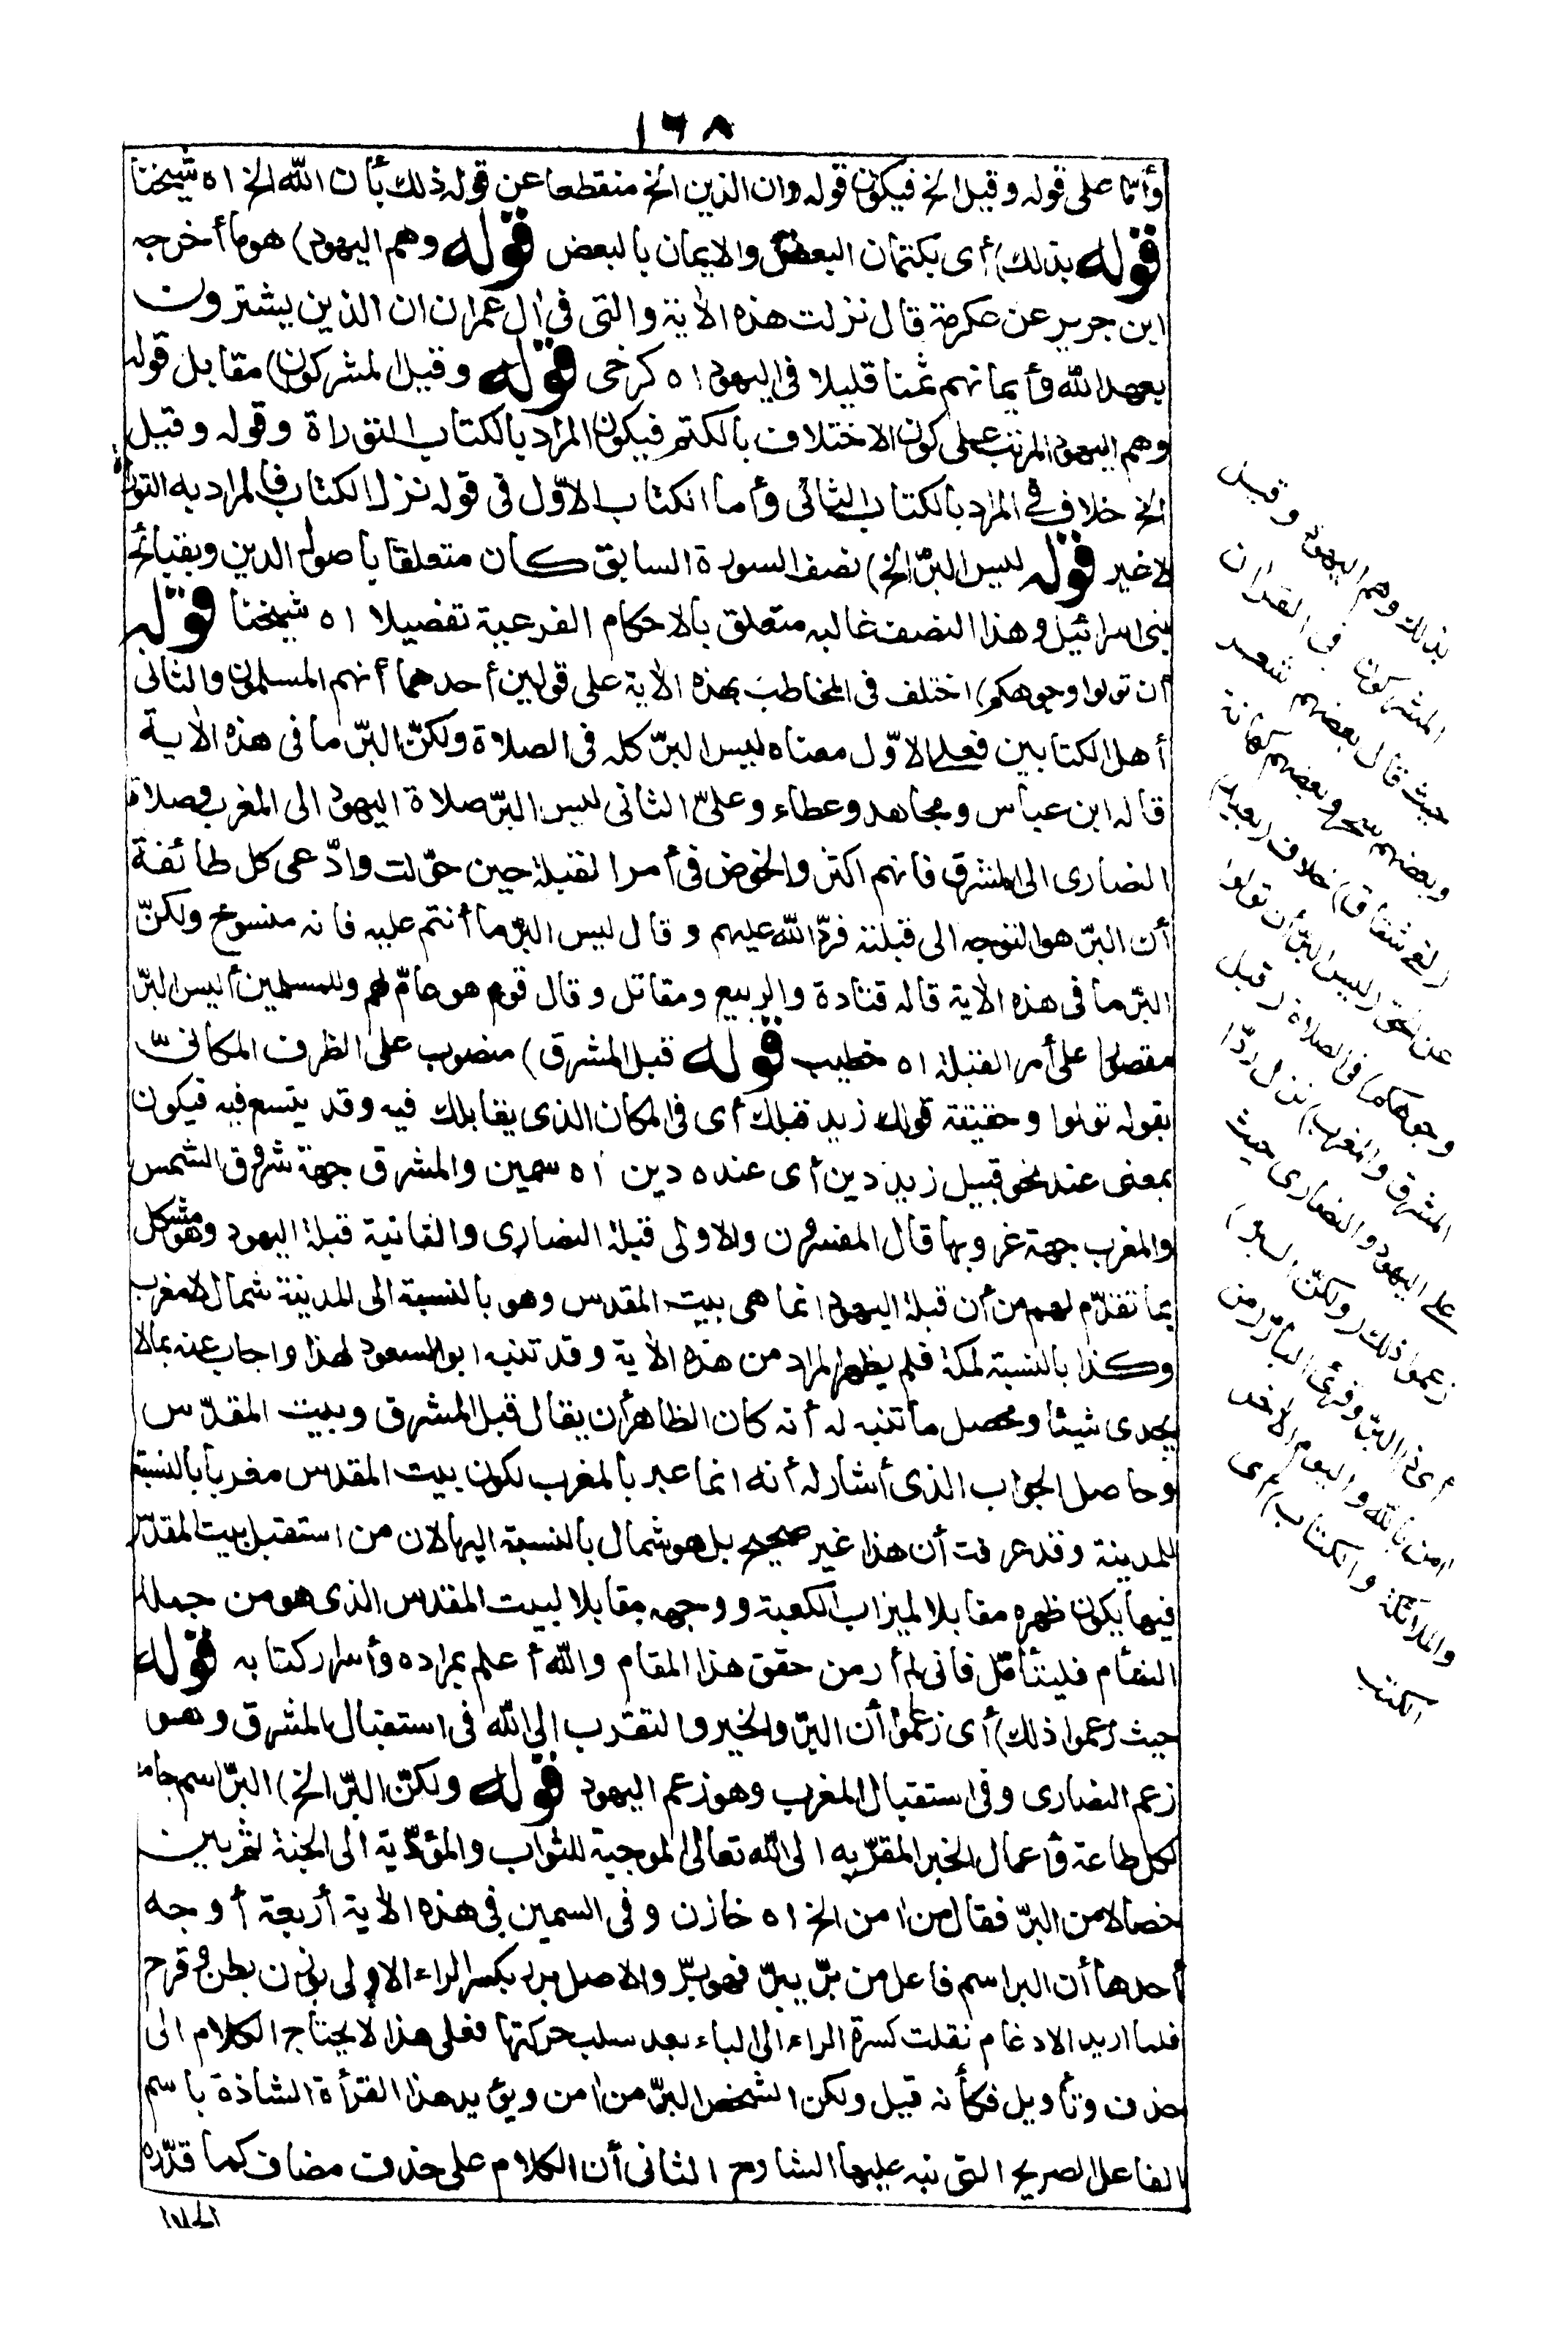 ١٦٨
وأمّا على قوله وقيل الخ فيكون قوله وان الذين الخ منقطعا عن قوله ذلك بأن الله الخ اه شيخنا
قوله بذلك) أى بكتمان البعض والايمان بالبعض قوله وهم اليهود) هو ما أخرجه
ابن جرير عن عكرمة قال نزلت هذه الاٰية والتى فى اٰل عمران ان الذين يشترون
بعهد الله وأيمانهم ثمنا قليلا فى اليهود اه كرخى قوله وقيل المشركون) مقابل قوله
وهم اليهود المرتب على كون الاختلاف بالكتم فيكون المراد بالكتاب التوراة وقوله وقيل
الخ خلاف فى المراد بالكتاب الثانى وأما الكتاب الاوّل فى قوله نزل الكتاب فالمراد به التوراة
لا غير قوله ليس البرّ الخ) نصف السورة السابق كان متعلقا بأصول الدين وبقبائح
بنى اسرائيل وهذا النصف غالبه متعلق بالاحكام الفرعية تفصيلا اه شيخنا قوله
أن تولوا وجوهكم) اختلف فى المخاطب بهذه الاٰية على قولين أحدهما أنهم المسلمون والثانى
أهل الكتابين فعلى الاوّل معناه ليس البرّ كله فى الصلاة ولكنّ البرّ ما فى هذه الاٰية
قاله ابن عباس ومجاهد وعطاء وعلى الثانى ليس البرّ صلاة اليهود الى المغرب وصلاة
النصارى الى المشرق فانهم اكثروا الخوض فى أمر القبلة حين حوّلت وادّعى كل طائفة
أن البرّ هو التوجه الى قبلته فردّ الله عليهم وقال ليس البرّ ما أنتم عليه فانه منسوخ ولكنّ
البرّ ما فى هذه الاٰية قاله قتادة والربيع ومقاتل وقال قوم هو عامّ لهم وللمسلمين أى ليس البرّ
مقصورا على أمر القبلة اه خطيب قوله قبل المشرق) منصوب على الظرف المكانىّ
بقوله تولوا وحقيقة قولك زيد قبلك أى فى المكان الذى يقابلك فيه وقد يتسع فيه فيكون
بمعنى عند نحو قبيل زيد دين أى عنده دين اه سمين والمشرق جهة شروق الشمس
والمغرب جهة غروبها قال المفسرون والاولى قبلة النصارى والثانية قبلة اليهود وهو مشكل
بما تقدّم لهم من أن قبلة اليهود انما هى بيت المقدس وهو بالنسبة الى المدينة شمال لا مغرب
وكذا بالنسبة لمكة فلم يظهر المراد من هذه الاٰية وقد تنبه ابو السعود لهذا واجاب عنه بما لا
يجدى شيئا ومحصل ما تنبه له أنه كان الظاهر أن يقال قبل المشرق وبيت المقدّس
وحاصل الجواب الذى أشار له أنه انما عبر بالمغرب لكون بيت المقدس مغربا بالنسبة
للمدينة وقد عرفت أن هذا غير صحيح بل هو شمال بالنسبة اليها لان من استقبل بيت المقدّس
فيها يكون ظهره مقابلا لميزاب الكعبة ووجهه مقابلا لبيت المقدس الذى هو من جملة
الشام فليتأمّل فانى لم أر من حقق هذا المقام والله أعلم بمراده وأسرار كتابه قوله
حيث زعموا ذلك) أى زعموا أن البرّ والخير والتقرب الى الله فى استقبال المشرق وهو
زعم النصارى وفى استقبال المغرب وهو زعم اليهود قوله ولكنّ البرّ الخ) البرّ اسم جامع
لكل طاعة وأعمال الخير المقرّبة الى الله تعالى الموجبة للثواب والمؤدّية الى الجنة ثم بين
خصالا من البرّ فقال من اٰمن الخ اه خازن وفى السمين فى هذه الاٰية أربعة أوجه
أحدها أن البر اسم فاعل من برّ يبرّ فهو برّ والاصل برر بكسر الراء الاولى بوزن بطن وفرح
فلما اريد الادغام نقلت كسرة الراء الى الباء بعد سلب حركتها فعلى هذا لا يحتاج الكلام الى
حذف وتأويل فكأنه قيل ولكن الشخص البرّ من اٰمن ويؤيد هذا القرأة الشاذة باسم
الفاعل الصريح التى نبه عليها الشارح الثانى أن الكلام على حذف مضاف كما قدّره
الجلال
بذلك وهم اليهود وقيل
المشركون فى القراٰن
حيث قال بعضهم شعر
وبعضهم سحر وبعضهم كهانة
(لفى شقاق) خلاف (بعيد)
عن الحق (ليس البرّ أن تولوا
وجوهكم) فى الصلاة (قبل
المشرق والمغرب) نزل ردّا
على اليهود والنصارى حيث
زعموا ذلك (ولكنّ البر)
أى ذا البرّ وقرئ البارّ (من
اٰمن بالله واليوم الاٰخر
والملائكة والكتاب) أى
الكتب